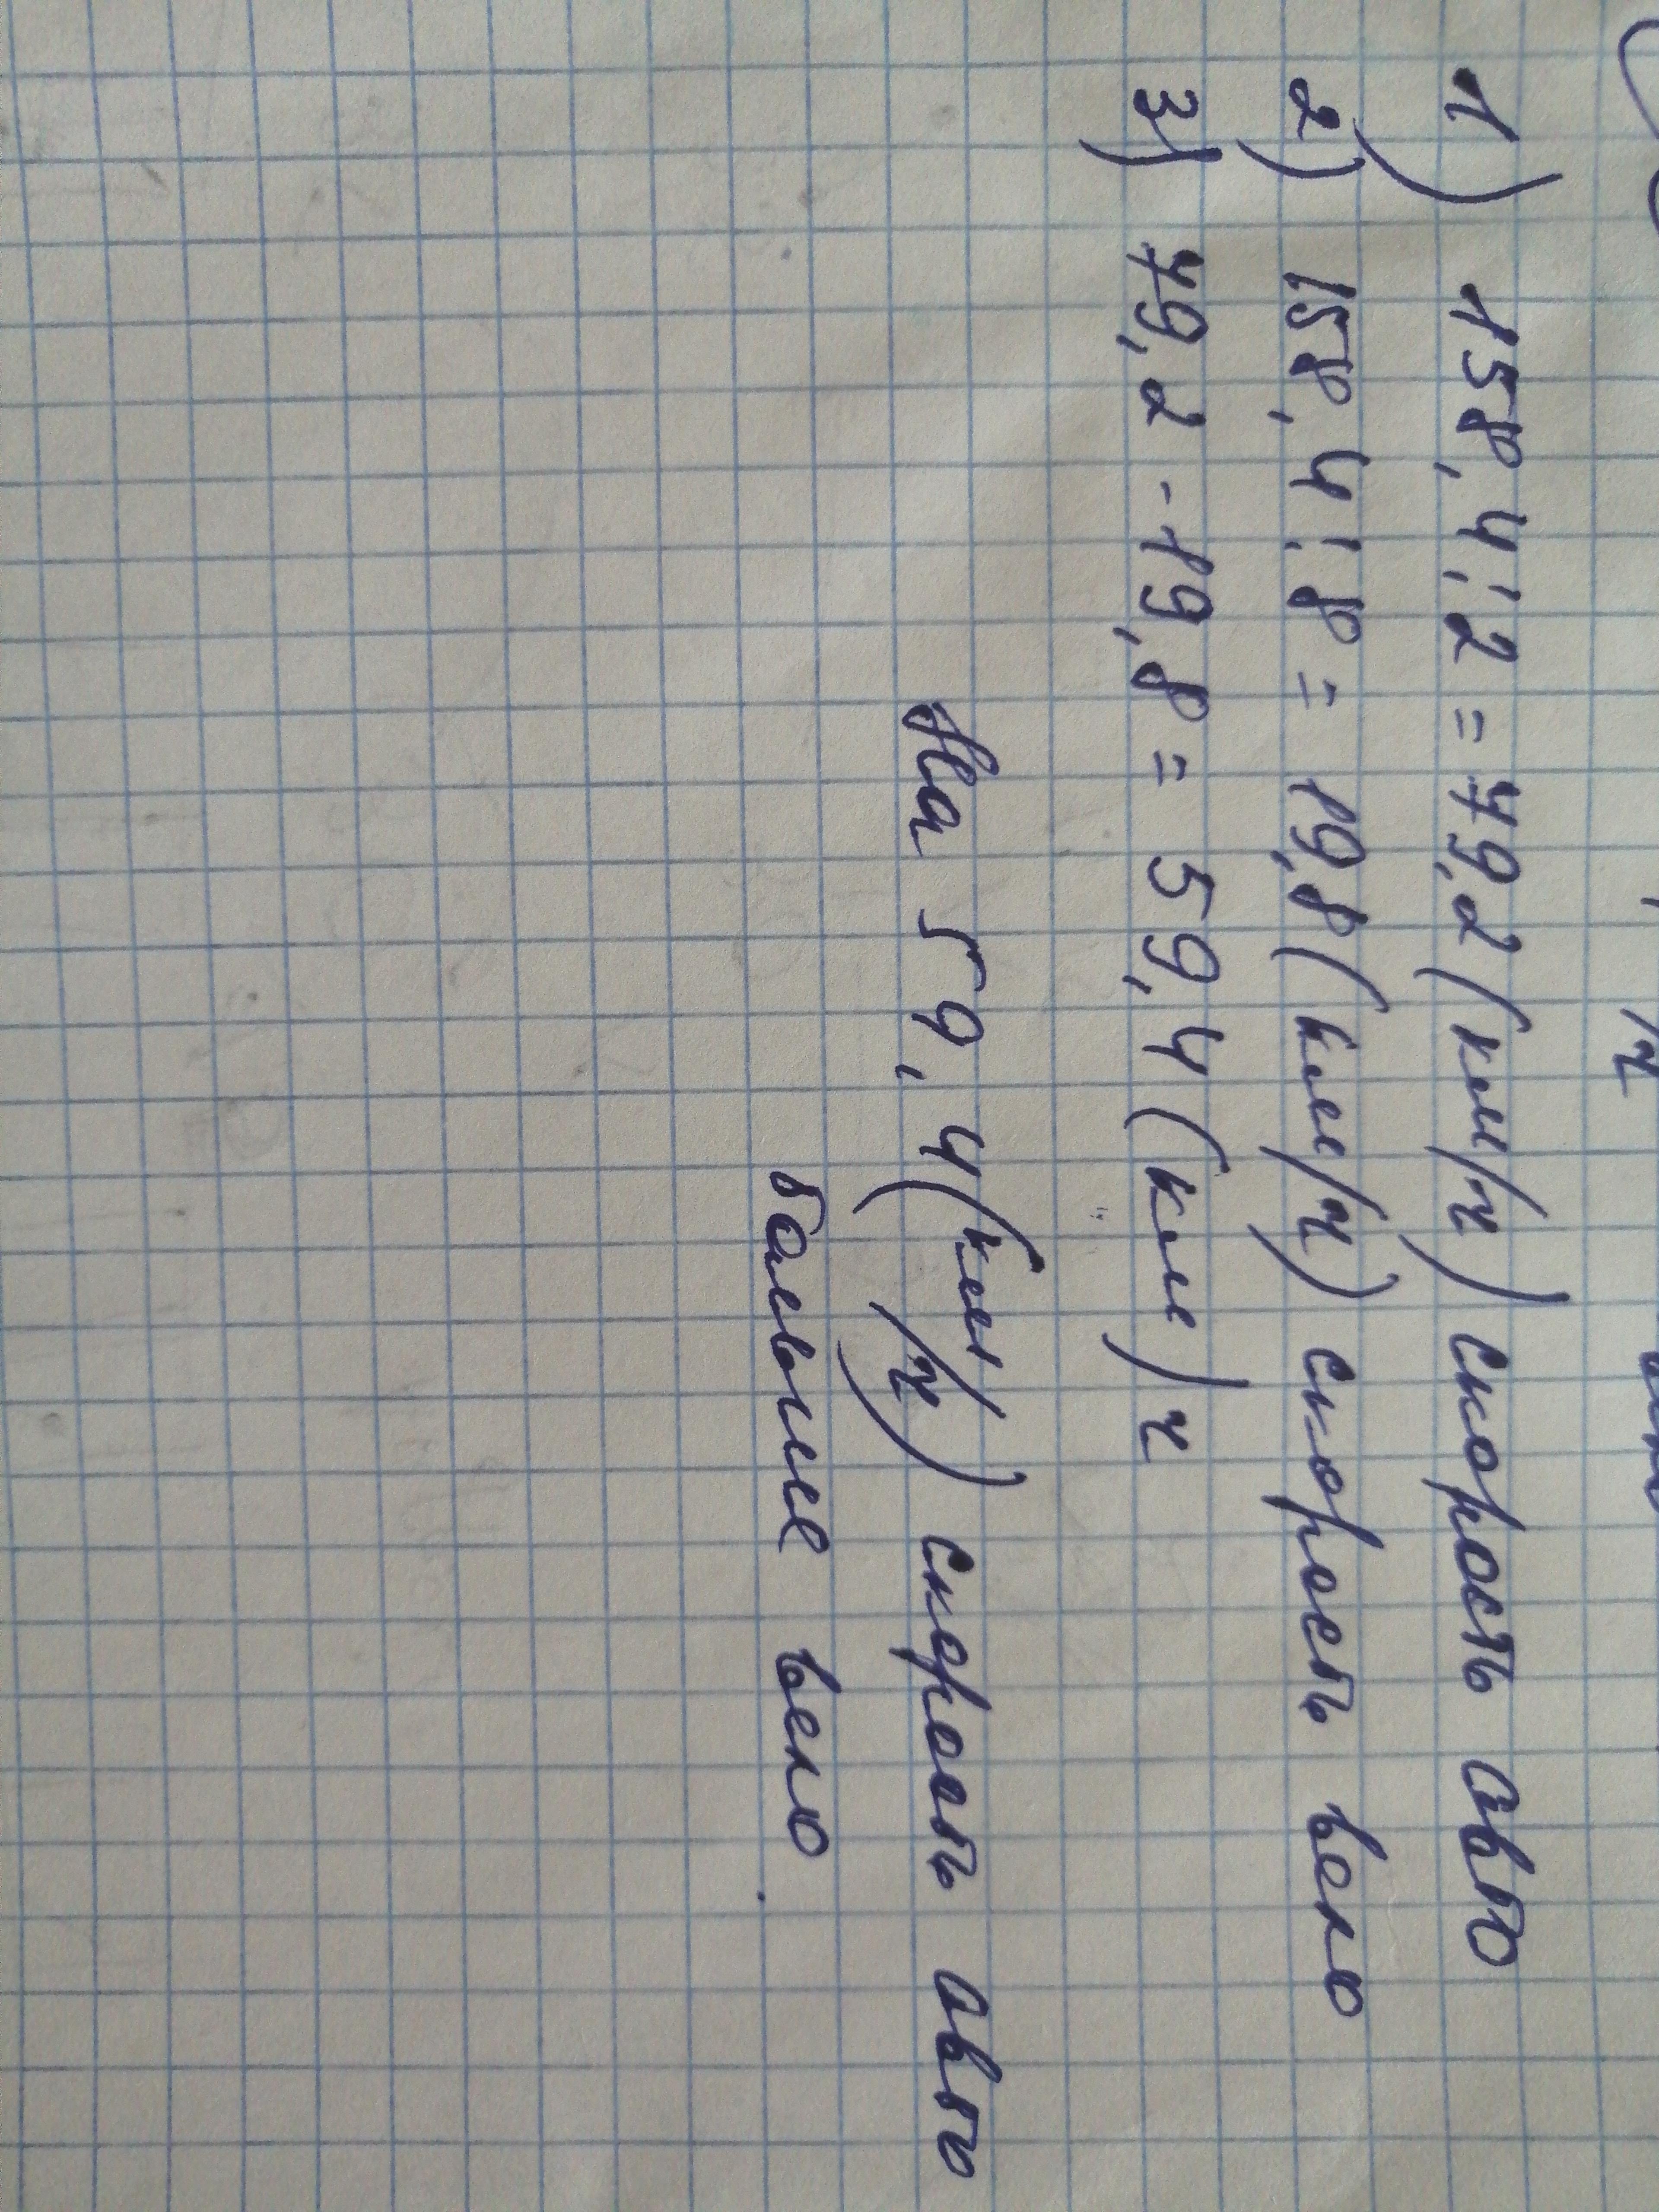 1) 158,4:2=79,2(км/ч) скорость авто
2) 158,4:8=19,8(км/ч) скорость вело
3) 79,2-19,8=59,4(км)ч
На 59,4(км/ч) скорость авто
больше вело